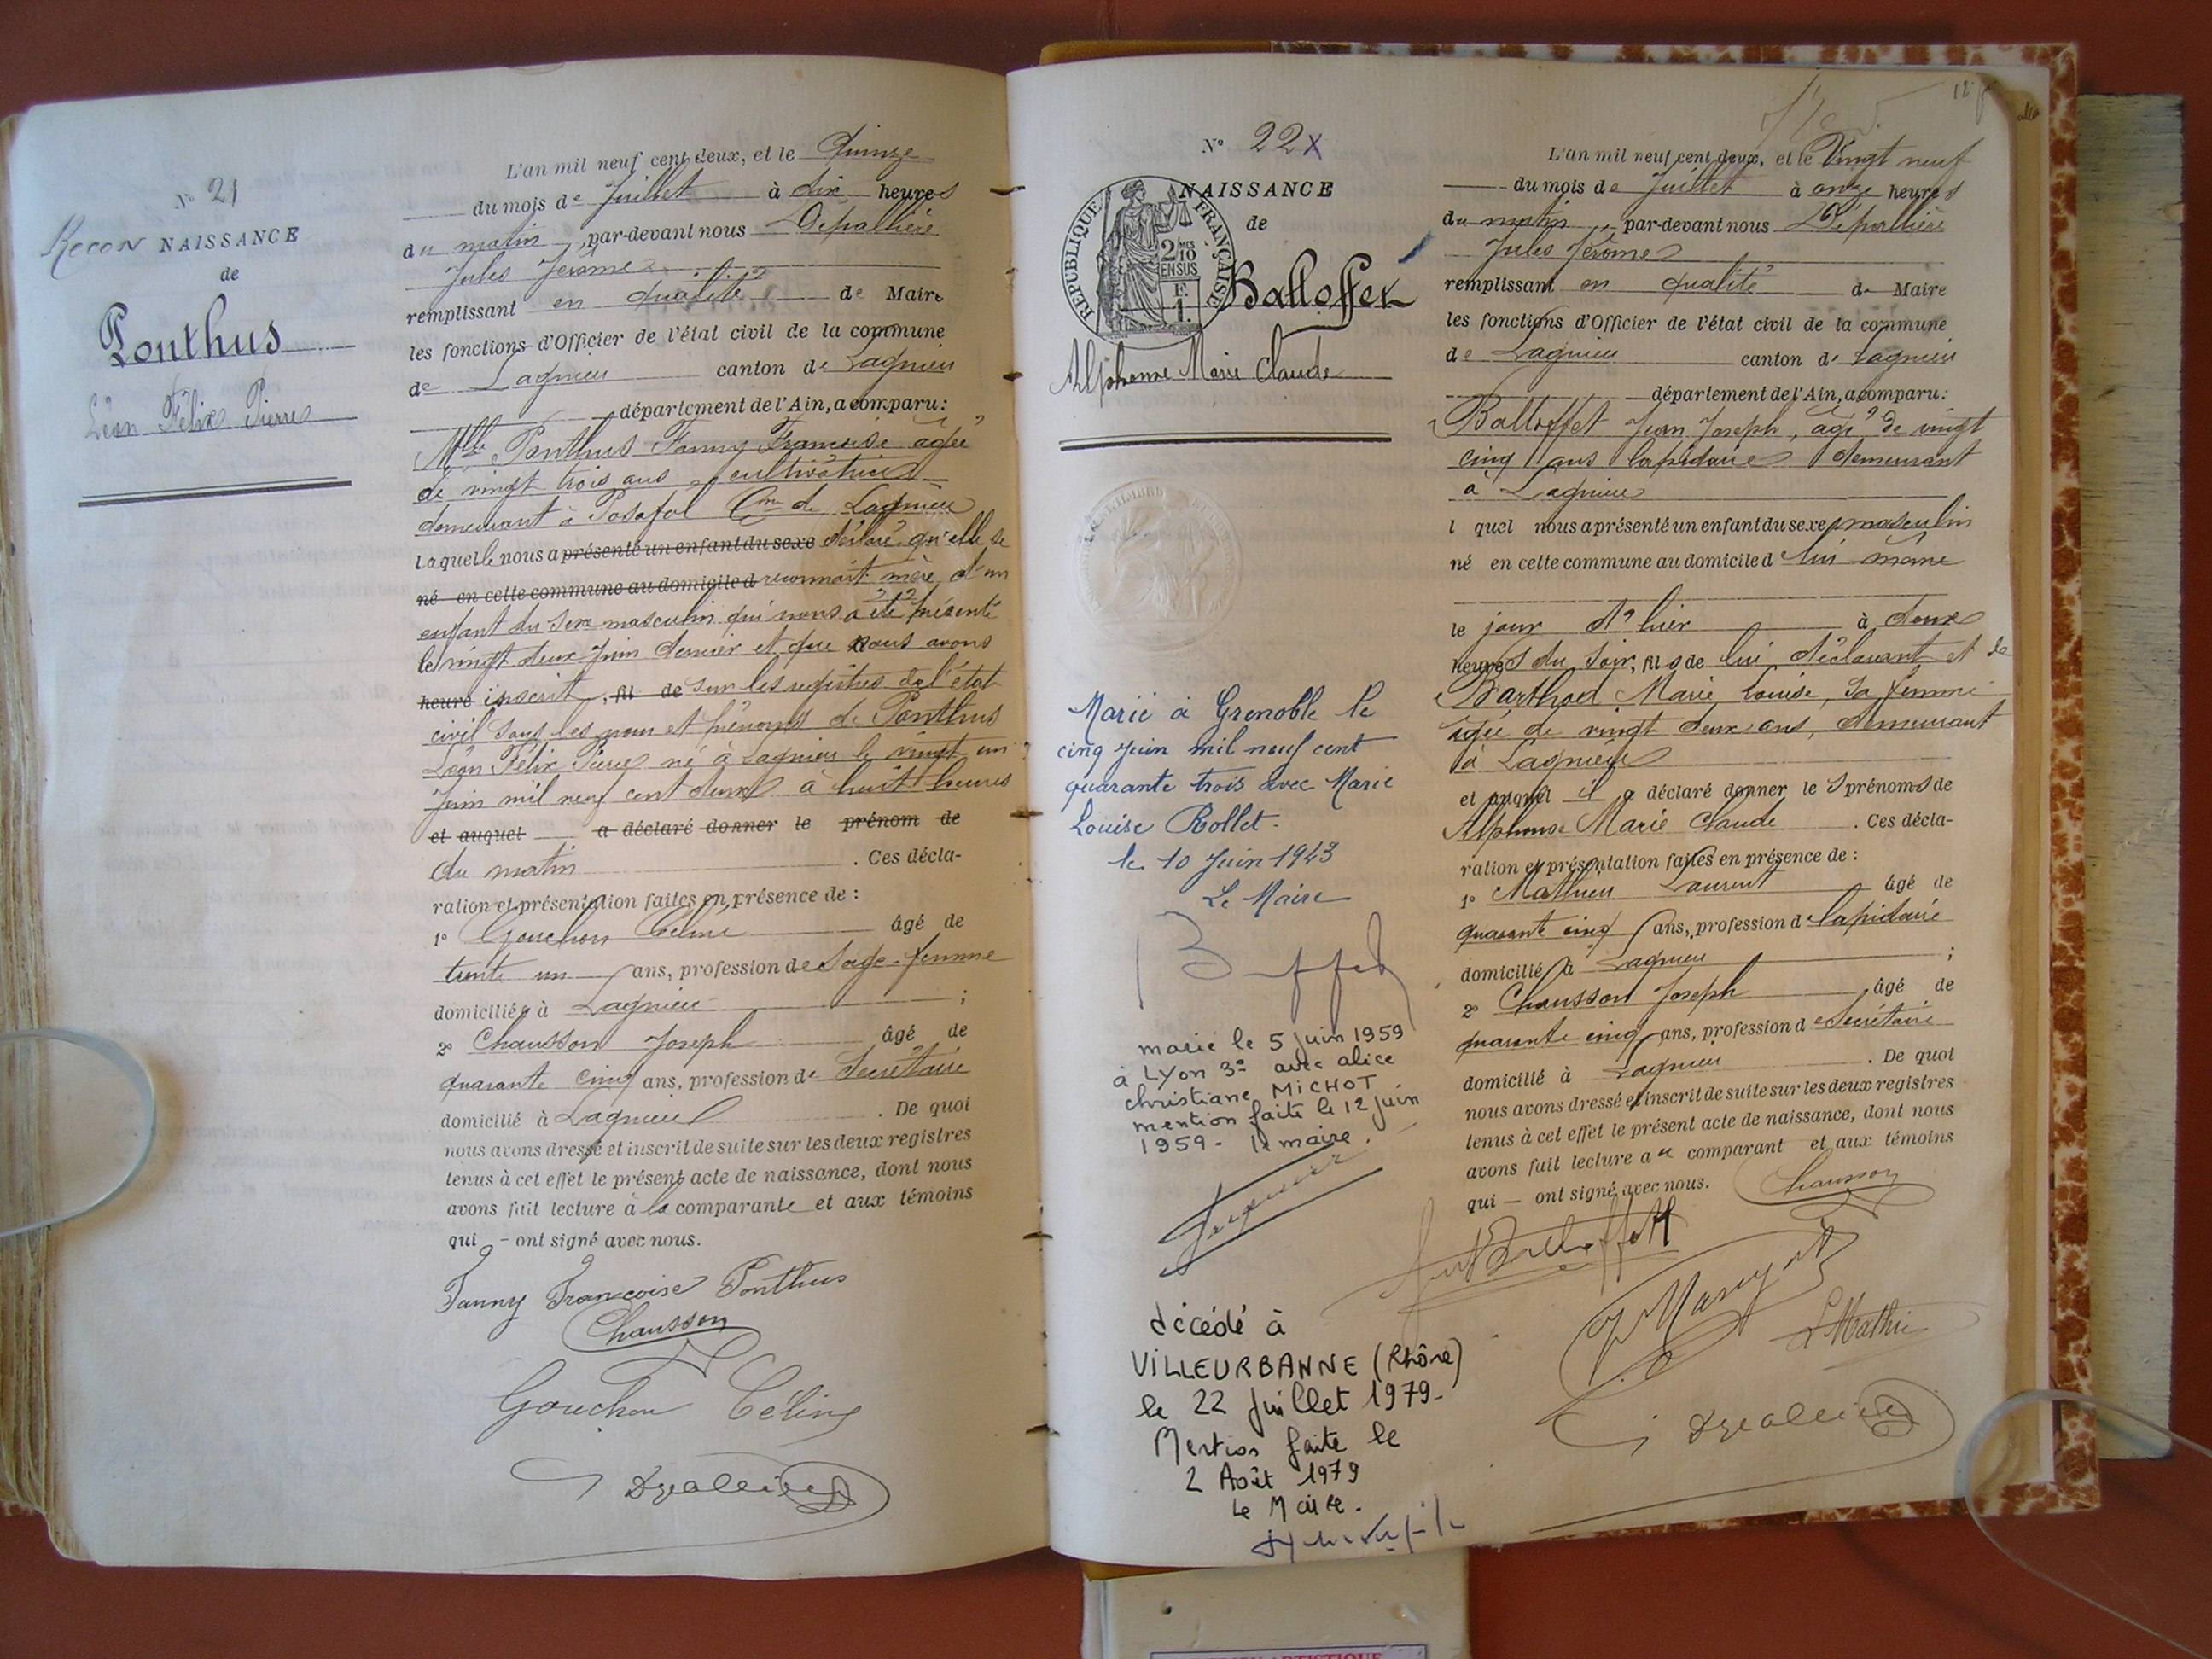 N° 21
Recon NAISSANCE
de
Ponthus
Léon Félix Pierre
L'an mil neuf cent deux, et le Quinze
du mois de Juillet à dix heures
du matin, par-devant nous Depallière
Jules Jérôme
remplissant en qualité de Maire
les fonctions d'Officier de l'état civil de la commune
de Lagnieu canton de Lagnieu
département de l'Ain, a comparu:
Mlle Ponthus Fanny Francoise agée
de vingt trois ans cultivatrice
demeurant à Posafol Cne de Lagnieu
laquelle nous a présenté un enfant du sexe déclaré qu'elle se
né en cette commune au domicile d reconnait mère d'un
enfant du sexe masculin qui nous a été présenté
le vingt deux Juin dernier et que nous avons
heure inscrit, fil de sur les registres de l'état
civil sous les nom et prénoms de Ponthus
Léon Félix Pierre né à Lagnieu le vingt un
Juin mil neuf cent deux à huit heures
et auquel a déclaré donner le prénom de
du matin . Ces décla-
ration et présentation faites en présence de :
1° Gouchon Céline âgé de
trente un ans, profession de Sage-femme
domiciliée à Lagnieu ;
2° Chausson Joseph âgé de
quarante cinq ans, profession de Secrétaire
domicilié à Lagnieu . De quoi
nous avons dressé et inscrit de suite sur les deux registres
tenus à cet effet le présent acte de naissance, dont nous
avons fait lecture à la comparante et aux témoins
qui — ont signé avec nous.
Fanny Francoise Ponthus
Chausson
Gouchon Céline
Depallière
N° 22 X
NAISSANCE
de
REPUBLIQUE FRANÇAISE
2/10
EN SUS
F.
1.
Balloffet
Alphonse Marie Claude
Marié à Grenoble le
cinq Juin mil neuf cent
quarante trois avec Marie
Louise Rollet.
le 10 Juin 1943
Le Maire
Buffet
marié le 5 juin 1959
à LYon 3e avec alice
christiane MiCHOT
mention faite le 12 juin
1959 - le maire.
décédé à
ViLLEURBANNE (Rhône)
le 22 Juillet 1979-
Mention faite le
2 Août 1979
Le Maire.
L'an mil neuf cent deux, et le Vingt neuf
du mois de Juillet à onze heures
du matin, par-devant nous Depallière
Jules Jérôme
remplissant en qualité de Maire
les fonctions d'Officier de l'état civil de la commune
de Lagnieu canton de Lagnieu
département de l'Ain, a comparu:
Balloffet Jean Joseph, agé de vingt
cinq ans lapidaire demeurant
à Lagnieu
l quel nous a présenté un enfant du sexe masculin
né en cette commune au domicile d lui même
le jour d'hier à deux
heures du soir, fils de lui déclarant et de
Barthod Marie Louise, sa femme
agée de vingt deux ans, demeurant
à Lagnieu
et auquel il a déclaré donner les prénoms de
Alphonse Marie Claude . Ces décla-
ration et présentation faites en présence de :
1° Mathieu Laurent âgé de
quarante cinq ans, profession d lapidaire
domicilié à Lagnieu ;
2° Chausson Joseph âgé de
quarante cinq ans, profession de Secrétaire
domicilié à Lagnieu . De quoi
nous avons dressé et inscrit de suite sur les deux registres
tenus à cet effet le présent acte de naissance, dont nous
avons fait lecture au comparant et aux témoins
qui — ont signé avec nous.
Chausson
Balloffet
L Mathieu
Depallière